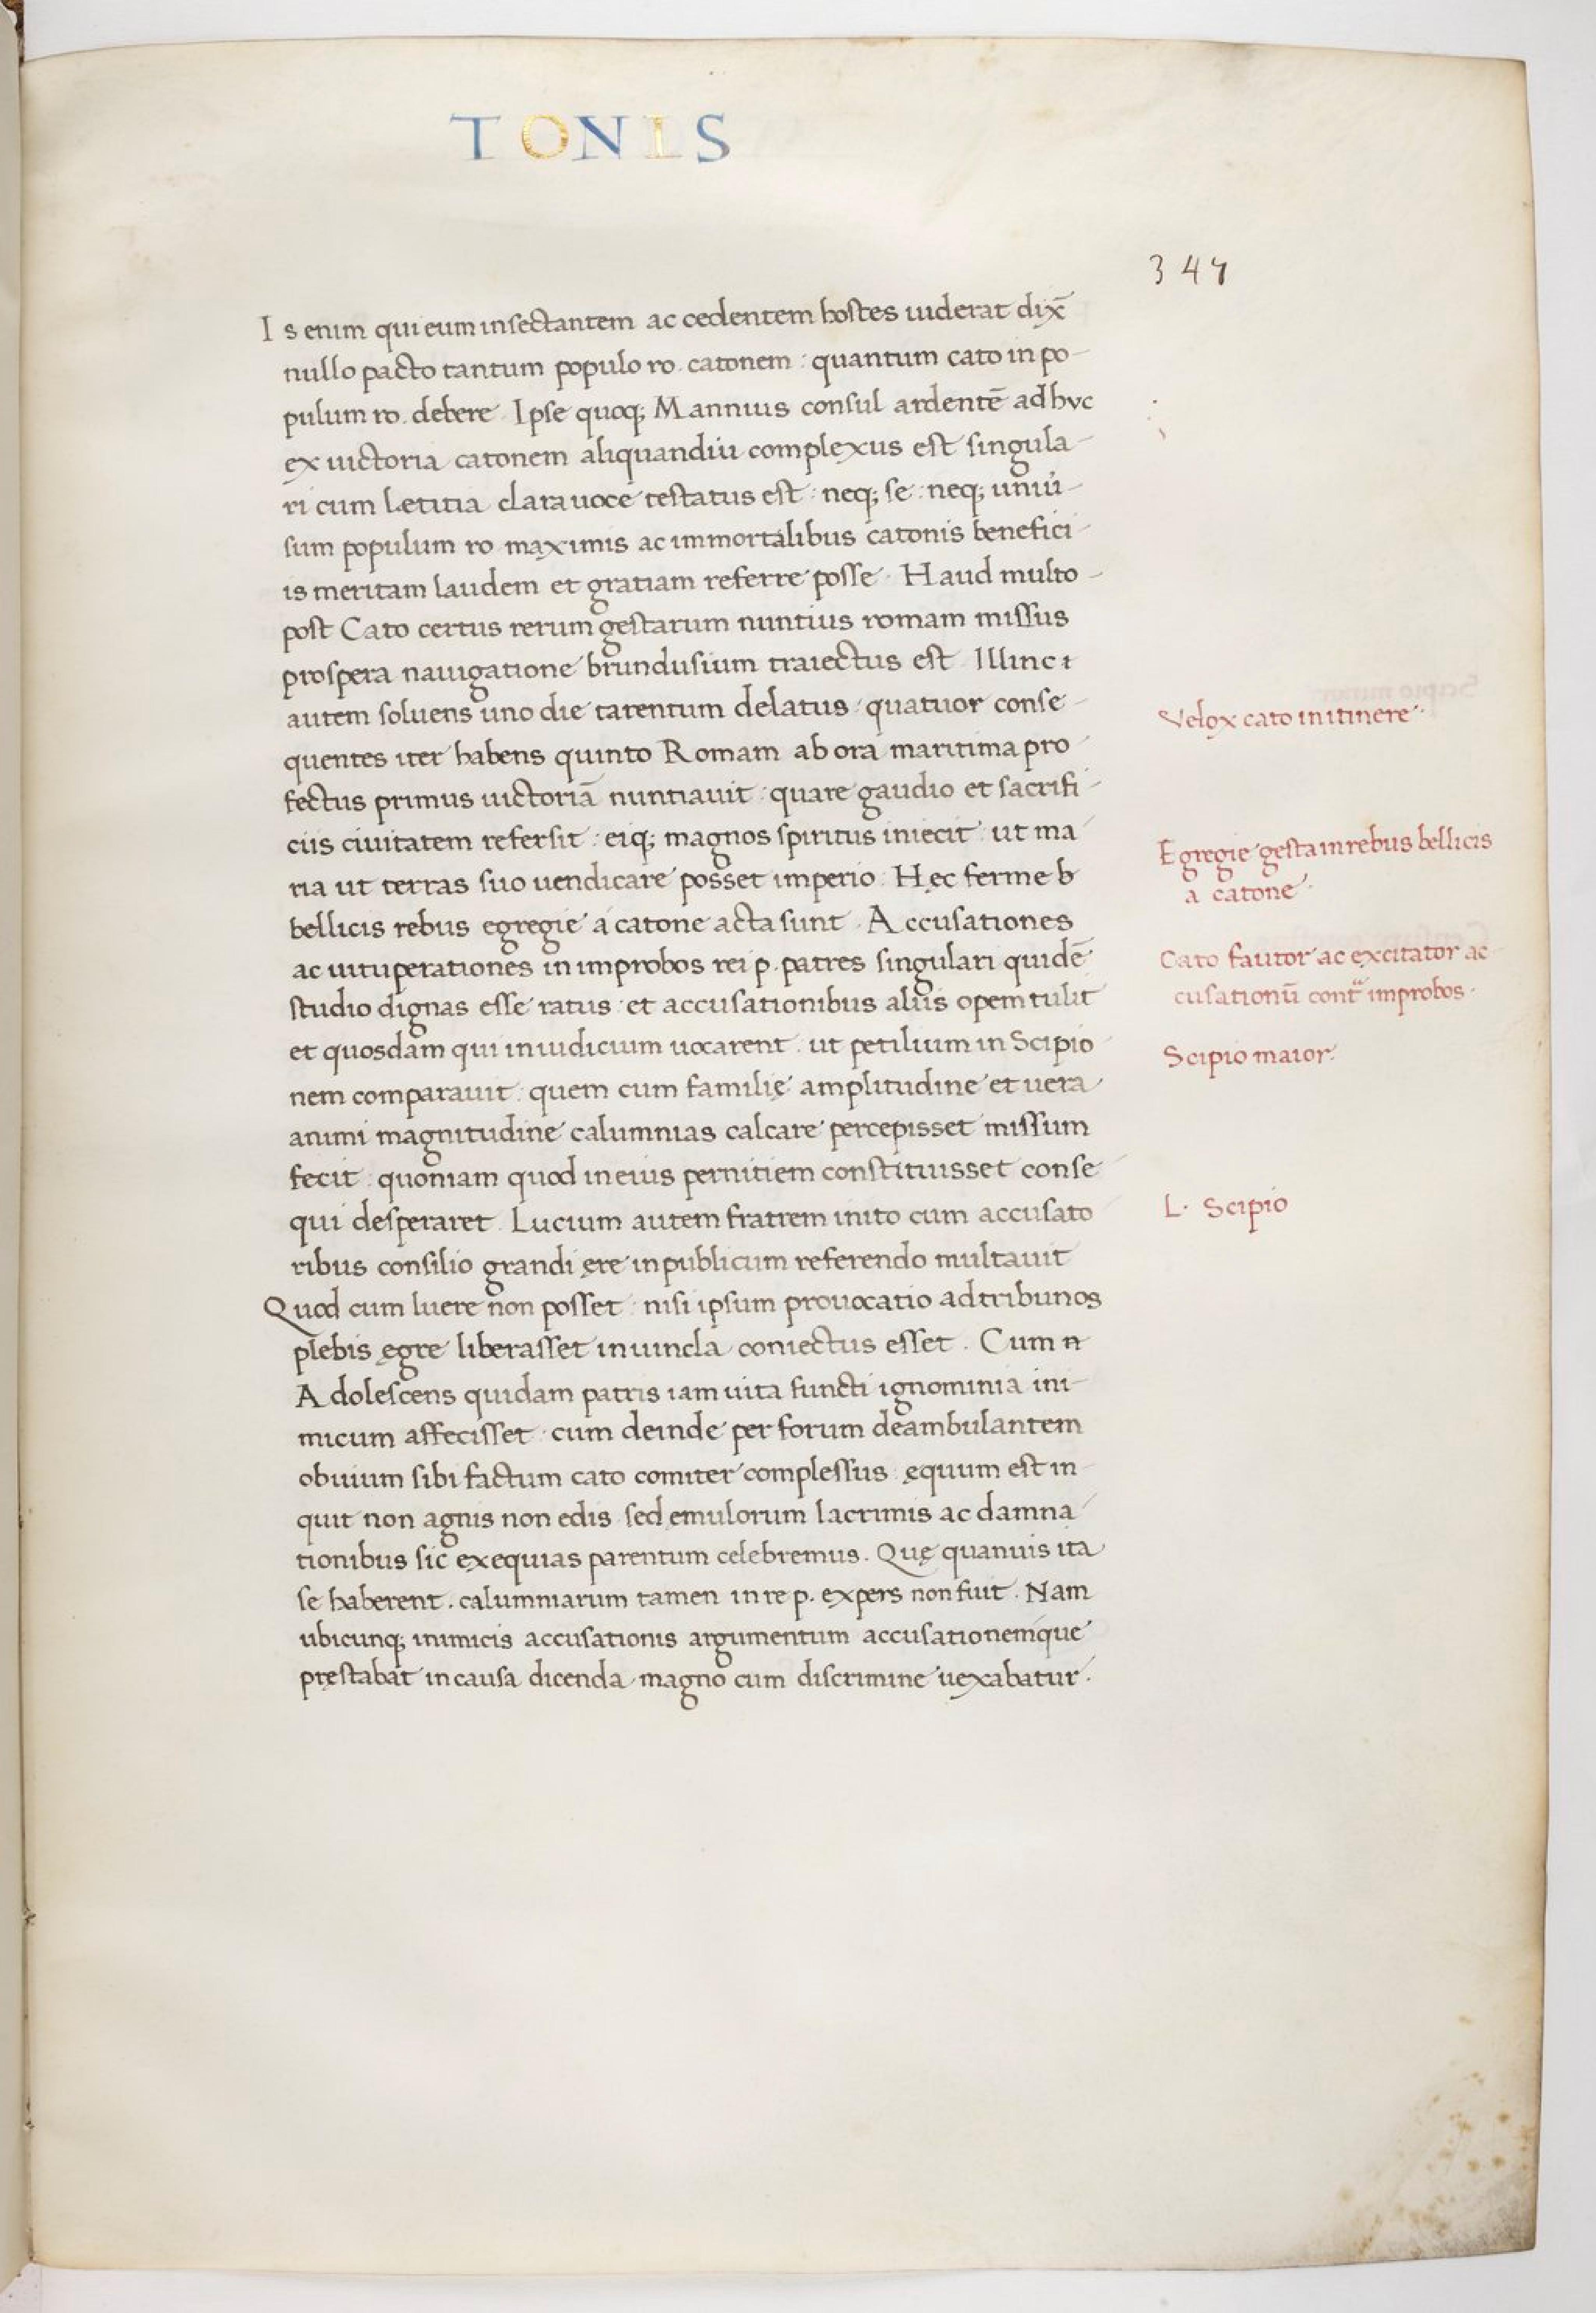 TONIS
347
Is enim qui eum insectantem ac cedentem hostes uiderat dix̄
nullo pacto tantum populo ro. catonem : quantum cato in po-
pulum ro. debere. Ipse quoq; Mannius consul ardentē adhvc
ex uictoria catonem aliquandiu complexus est singula-
ri cum Letitia clara uoce testatus est : neq; se : neq; uniu͛-
sum populum ro maximis ac immortalibus catonis benefici-
is meritam laudem et gratiam referre posse. Haud multo-
post Cato certus rerum gestarum nuntius romam missus
prospera nauigatione brundusium traiectus est. Illinc ɩ
autem soluens uno die tarentum delatus : quatuor conse-
Velox cato in itinere.
quentes iter habens quinto Romam ab ora maritima pro-
fectus primus uictoriā nuntiauit : quare gaudio et sacrifi-
ciis ciuitatem refersit : eiq; magnos spiritus iniecit : ut ma-
Egregie gesta in rebus bellicis
a catone.
ria ut terras suo uendicare posset imperio. Hęc ferme b
bellicis rebus egregie a catone acta sunt. Accusationes
ac uituperationes in improbos rei p. patres singulari quidē
Cato fautor ac excitator ac
cusationū contᵃ improbos.
studio dignas esse ratus : et accusationibus aliis opem tulit
et quosdam qui in iudicium uocarent : ut petilium in Scipio
Scipio maior.
nem comparauit : quem cum familię amplitudine et uera
animi magnitudine calumnias calcare percepisset missum
fecit : quoniam quod in eius pernitiem constituisset conse-
qui desperaret. Lucium autem fratrem inito cum accusato
L. Scipio
ribus consilio grandi ęre in publicum referendo multauit
Quod cum luere non posset : nisi ipsum prouocatio ad tribunos
plebis ęgre liberasset in uincla coniectus esset. Cum n
Adolescens quidam patris iam uita functi ignominia ini-
micum affecisset : cum deinde per forum deambulantem
obuium sibi factum cato comiter complessus : ęquum est in-
quit non agnis non edis sed ęmulorum lacrimis ac damna-
tionibus sic exequias parentum celebremus. Quę quanuis ita
se haberent. calumniarum tamen in re p. expers non fuit. Nam
ubicunq; inimicis accusationis argumentum accusationemque
pręstabat in causa dicenda magno cum discrimine uexabatur.